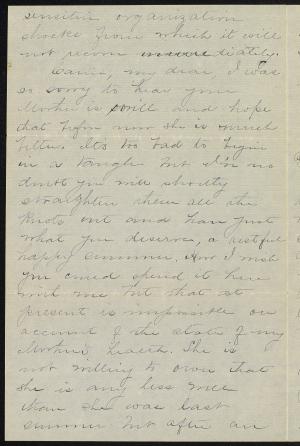 sensitive organization
shocks from which it will
not recover immediately.
Carrie, my dear, I was
so sorry to hear your
Mother is so ill and hope
that before now she is much
better. Its too bad to begin
in a tangle but I've no
doubt you will shortly
straighten these all the
knots out and have just
what you deserve, a restful
happy summer. How I wish
you could spend it here
with me but that at
present is impossible on
account of the state of my
Mother's health. She is
not willing to own that
she is any less well
than she was last
summer but after an